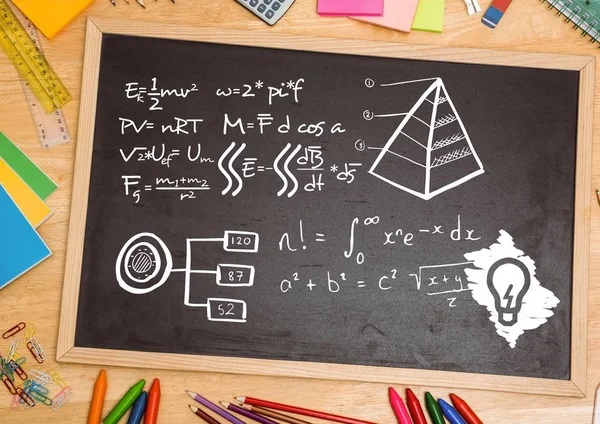 Eₖ = 1/2 mv² ω = 2* pi*f
PV = nRT M = F̅ d cos a
√2*U_ef = U_m ∫∫ E̅ = - ∫∫ dB̅/dt * dS̅
F_g = m₁+m₂/r²
① 
②
③
120
87
52
n! = ∫₀^∞ xⁿe^-x dx
a² + b² = c² √x+y/2